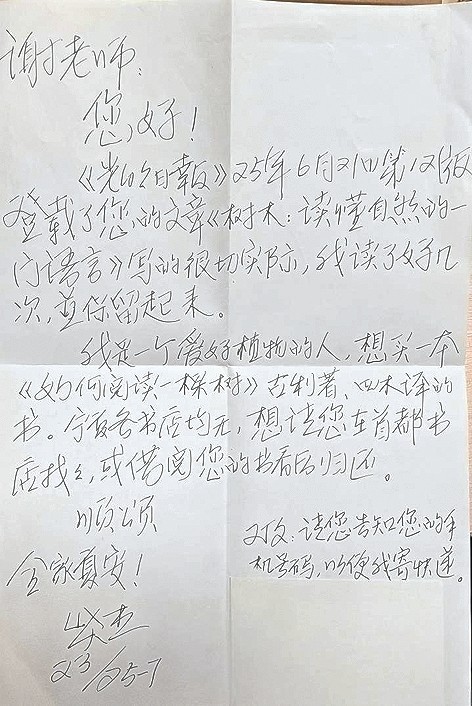 谢老师：
您好！
《光明日報》25年6月21日第12版
登载了您的文章《树木：读懂自然的一
门语言》写的很切实际，我读了好几
次，並保留起来。
我是一个爱好植物的人，想买一本
《如何阅读一棵树》古利著、四木译的
书。宁夏各书店均无，想请您在首都书
店找找，或借阅您的书看后归还。
顺颂
全家夏安！
又及：请您告知您的手
机号码，以便我寄快递。
23/25-7